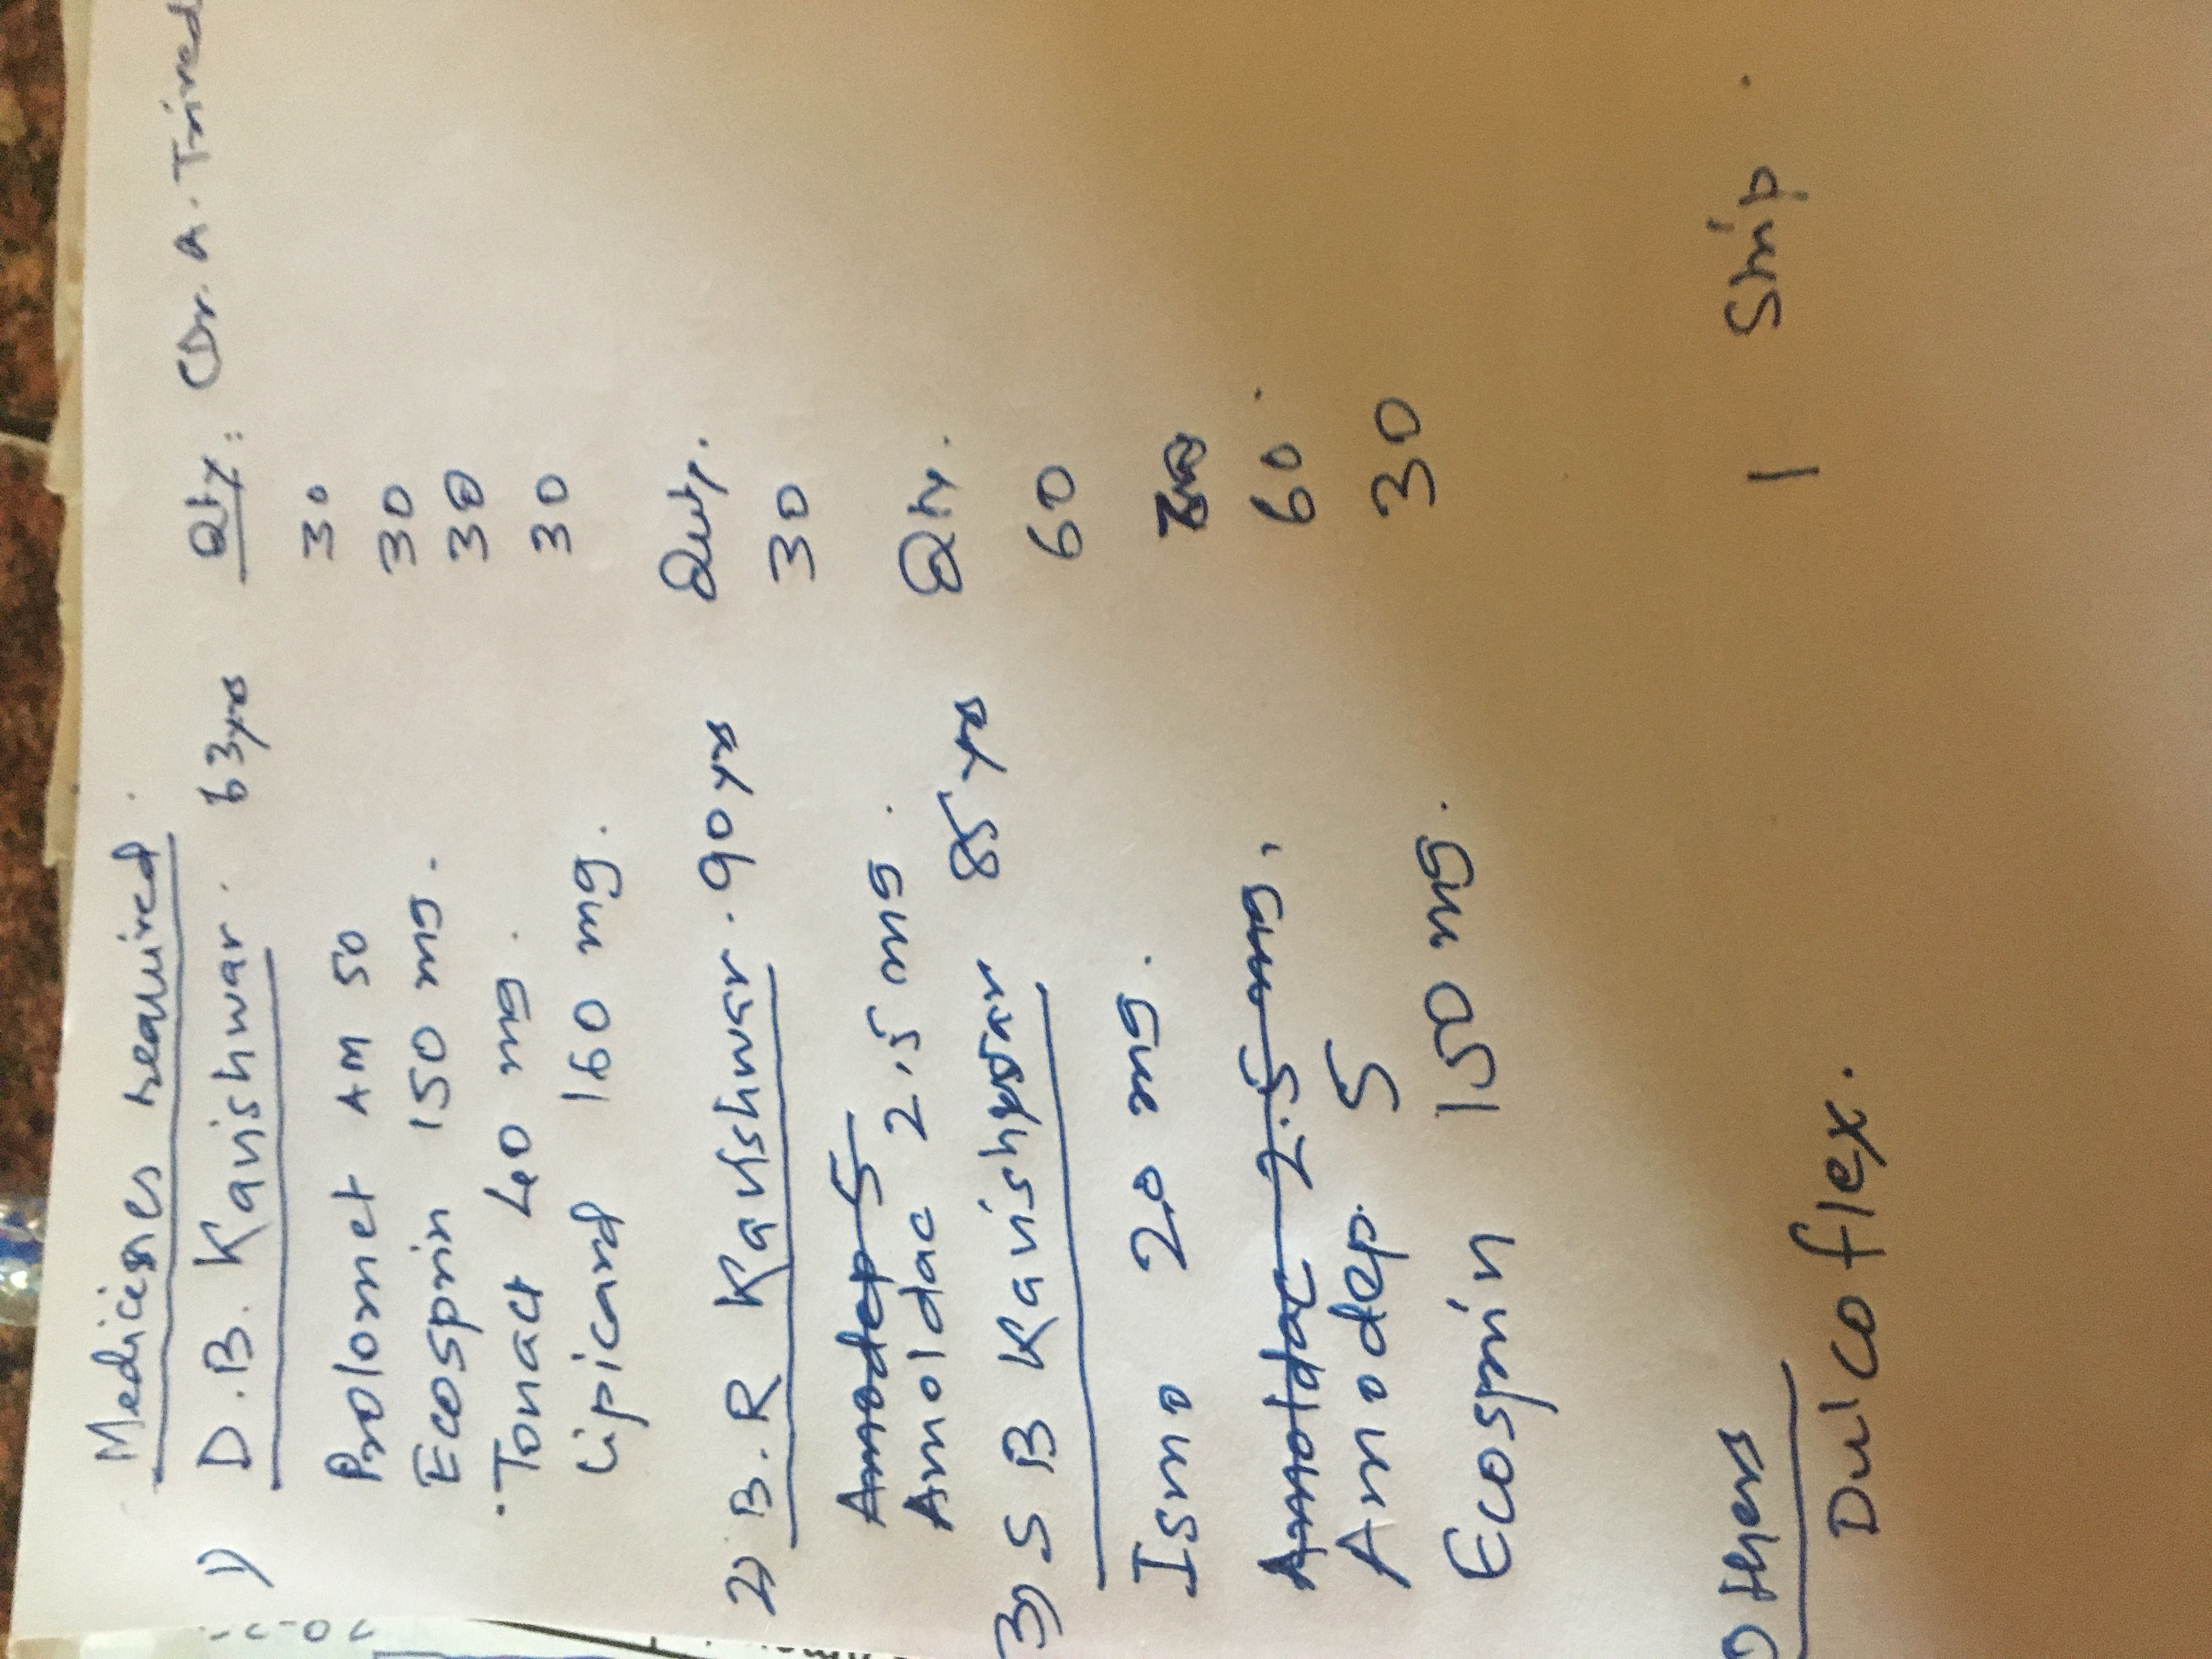 Medicines required.
1) D.B. Kavishwar. 63yrs Qty: (Dr. A. Trived
Prolomet AM 50 30
Ecosprin 150 mg. 30
Tonact 40 mg. 30
Lipicard 160 mg. 30
2) B.R Kavishwar. 90 yrs Quty.
Amodep 5
Amoldac 2.5 mg. 30
3) S B Kavishwar 85 yrs Qty.
Ismo 20 mg. 60
Amoldac 2.5 mg.
Amodep. 5 60.
Ecosprin 150 mg. 30
Others
Dulcoflex. 1 Strip.